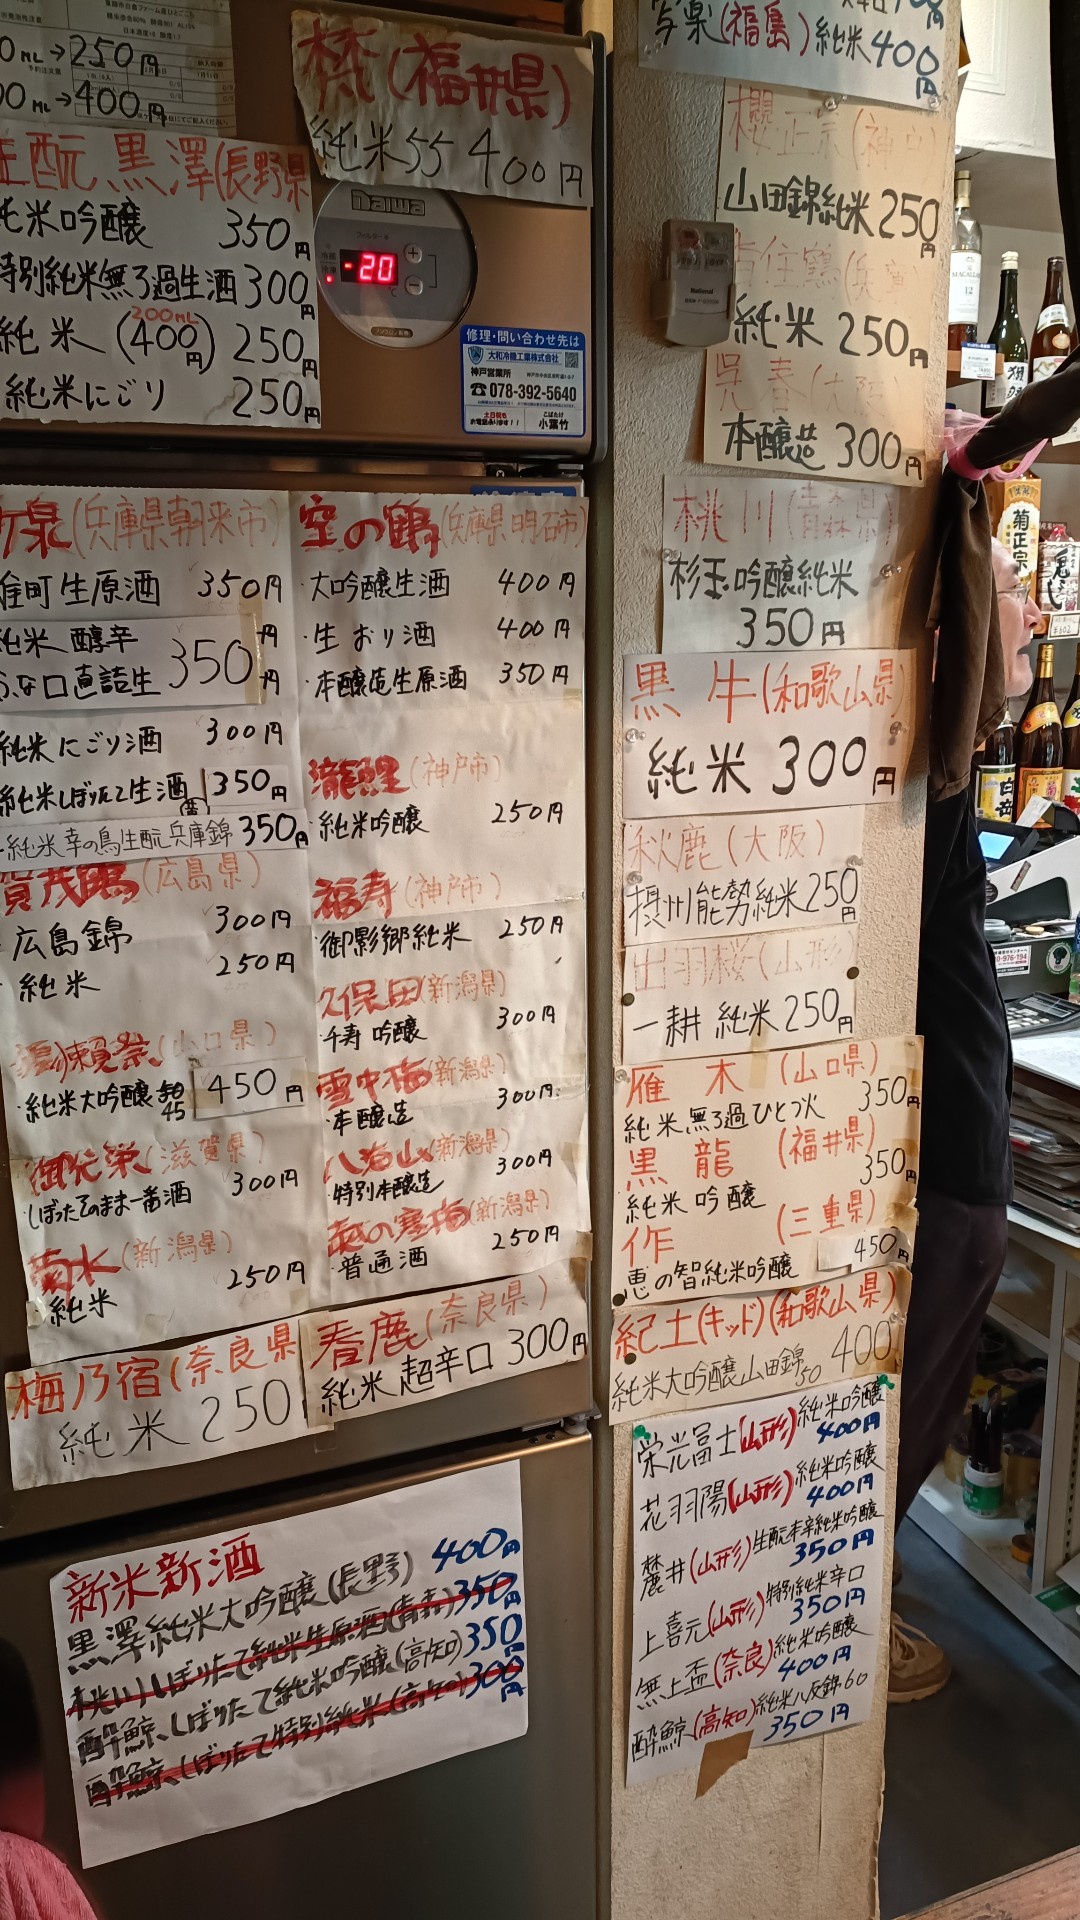 0ML→250円
00ML→400円
梵(福井県)
純米55 400円
生酛 黒澤(長野県
純米吟醸 350円
特別純米無ろ過生酒 300円
200ML
純米(400円) 250円
純米にごり 250円
Daiwa
フィルター
-20
修理・問い合わせ先は
大和冷機工業株式会社
神戸営業所
☎078-392-5640
小葉竹
写楽(福島)純米400円
櫻正宗(神戸)
山田錦純米250円
純米 250円
呉春(大阪)
本醸造 300円
National
桃川(青森県)
杉玉吟醸純米
350円
黒牛(和歌山県)
純米 300円
秋鹿(大阪)
摂州能勢純米250円
出羽桜(山形)
一耕 純米250円
雁木(山口県)
純米無ろ過ひとつ火 350円
黒龍(福井県)
純米吟醸 350円
作(三重県)
恵の智純米吟醸 450円
紀土(キッド)(和歌山県)
純米大吟醸山田錦50 400
栄光冨士(山形)純米吟醸
400円
花羽陽(山形)純米吟醸
400円
麓井(山形)生酛本辛純米吟醸
350円
上喜元(山形)特別純米辛口
350円
無上盃(奈良)純米吟醸
400円
酔鯨(高知)純米八反錦60
350円
泉(兵庫県朝来市)
雄町生原酒 350円
純米 醇辛 円
ふな口直詰生 350円
純米にごり酒 300円
純米しぼりたて生酒 350円
純米幸の鳥生酛兵庫錦 350円
賀茂鶴(広島県)
広島錦 300円
純米 250円
獺祭(山口県)
純米大吟醸 45 450円
御代栄(滋賀県)
しぼったそのまま一番酒 300円
菊水(新潟県)
純米 250円
空の鶴(兵庫県明石市)
大吟醸生酒 400円
生おり酒 400円
本醸造生原酒 350円
瀧鯉(神戸市)
純米吟醸 250円
福寿(神戸市)
御影郷純米 250円
久保田(新潟県)
千寿 吟醸 300円
雪中梅(新潟県)
本醸造 300円
八海山(新潟県)
特別本醸造 300円
越の寒梅(新潟県)
普通酒 250円
梅乃宿(奈良県
純米 250
春鹿(奈良県)
純米 超辛口 300円
新米新酒
黒澤純米大吟醸(長野) 400円
桃川しぼりたて純米生原酒(青森) 350円
酔鯨、しぼりたて純米吟醸(高知) 350
酔鯨、しぼりたて特別純米(高知) 300円
MACALLAN
12
菊正宗